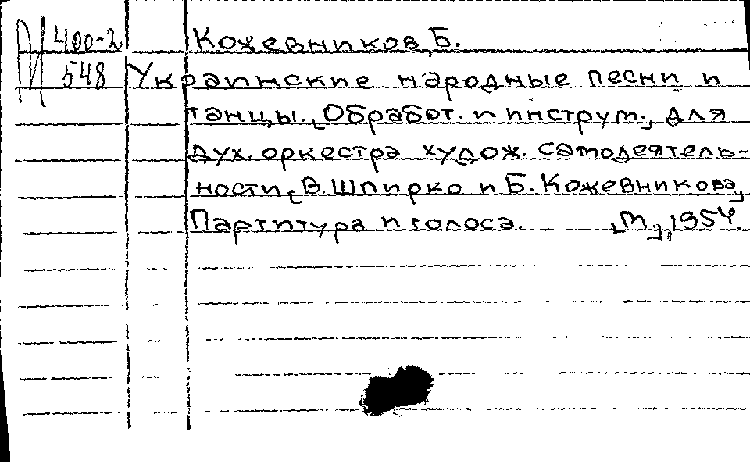 400-2 Кожевников, Б.
548 Украинские народные песни и
танцы. [Обработ. и инструм.] для
дух. оркестра худож. самодеятель-
ности [В. Шпирко и Б. Кожевникова]
Партитура и голоса. [М.], 1954.